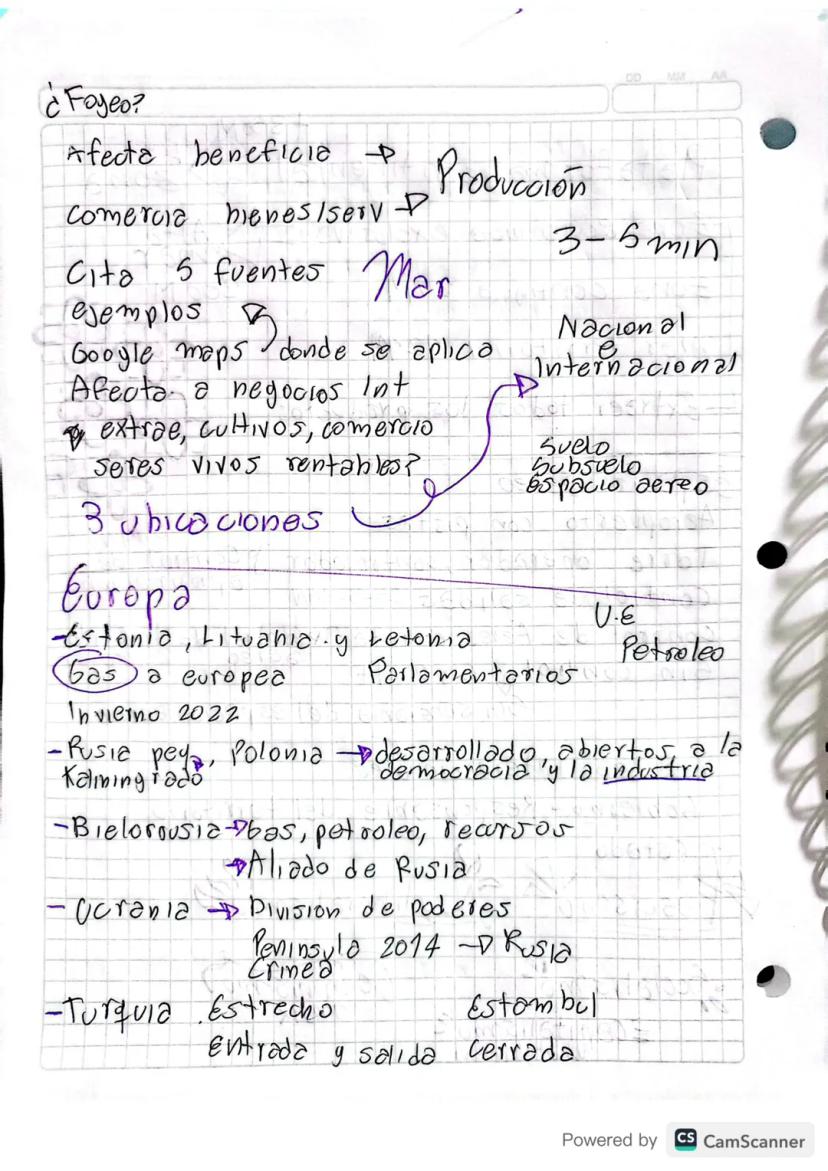 DD MM AA
¿Foyeo?
Afecta beneficia →
Producción
comercia bienes/serv →
3-5 min
Cita 5 fuentes Mar
ejemplos
Nacional
e
Internacional
Google maps donde se aplica
Afecta a negocios Int
extrae, cultivos, comercio
seres vivos rentables?
suelo
subsuelo
espacio aereo
3 ubicaciones
Europa
U.E
Petroleo
-Estonia, Lituania y Letonia
Gas a europea Parlamentarios
Invierno 2022
-Rusia pega, Polonia → desarrollado, abiertos a la
Kalmingrado democracia y la industria
-Bielorousia → Gas, petroleo, recursos
→ Aliado de Rusia
- Ucrania → Division de poderes
Peninsula 2014 → Rusia
Crimea
-Turquia Estrecho Estambul
entrada y salida cerrada
Powered by CS CamScanner